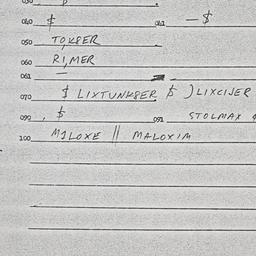 030
040 $ 041 — $
050 TOKSER
060 RIMER
061 —
070 $ LIXTUNKSER $ JLIXCIJER
090 , $ 091 STOLMAX
100 MILOXE || MALOXIM